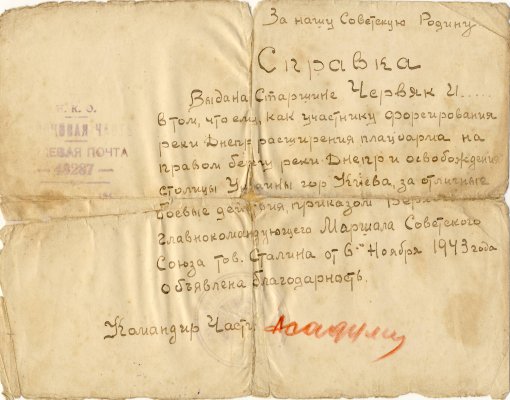 За нашу Советскую Родину
Справка
Выдана Старшине Червяк И.....
в том, что ему, как участнику форсирования
реки Днепр расширения плацдарма на
правом берегу реки Днепр и освобождения
столицы Украины гор Киева, за отличные
боевые действия, приказом
главнокомандующего Маршала Советского
Союза тов. Сталина от 6го Ноября 1943 года
объявлена благодарность.
Н. К. О.
ЧАСТЬ
ПОЧТА
Командир Част.